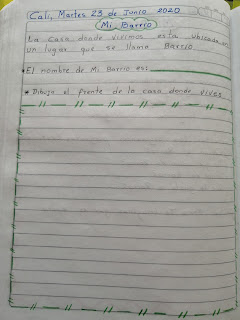 Cali, Martes 23 de Junio 2020
Mi Barrio
La casa donde vivimos esta ubicada en
un lugar que se llama Barrio
* El nombre de Mi Barrio es:
* Dibuja el frente de la casa donde vives